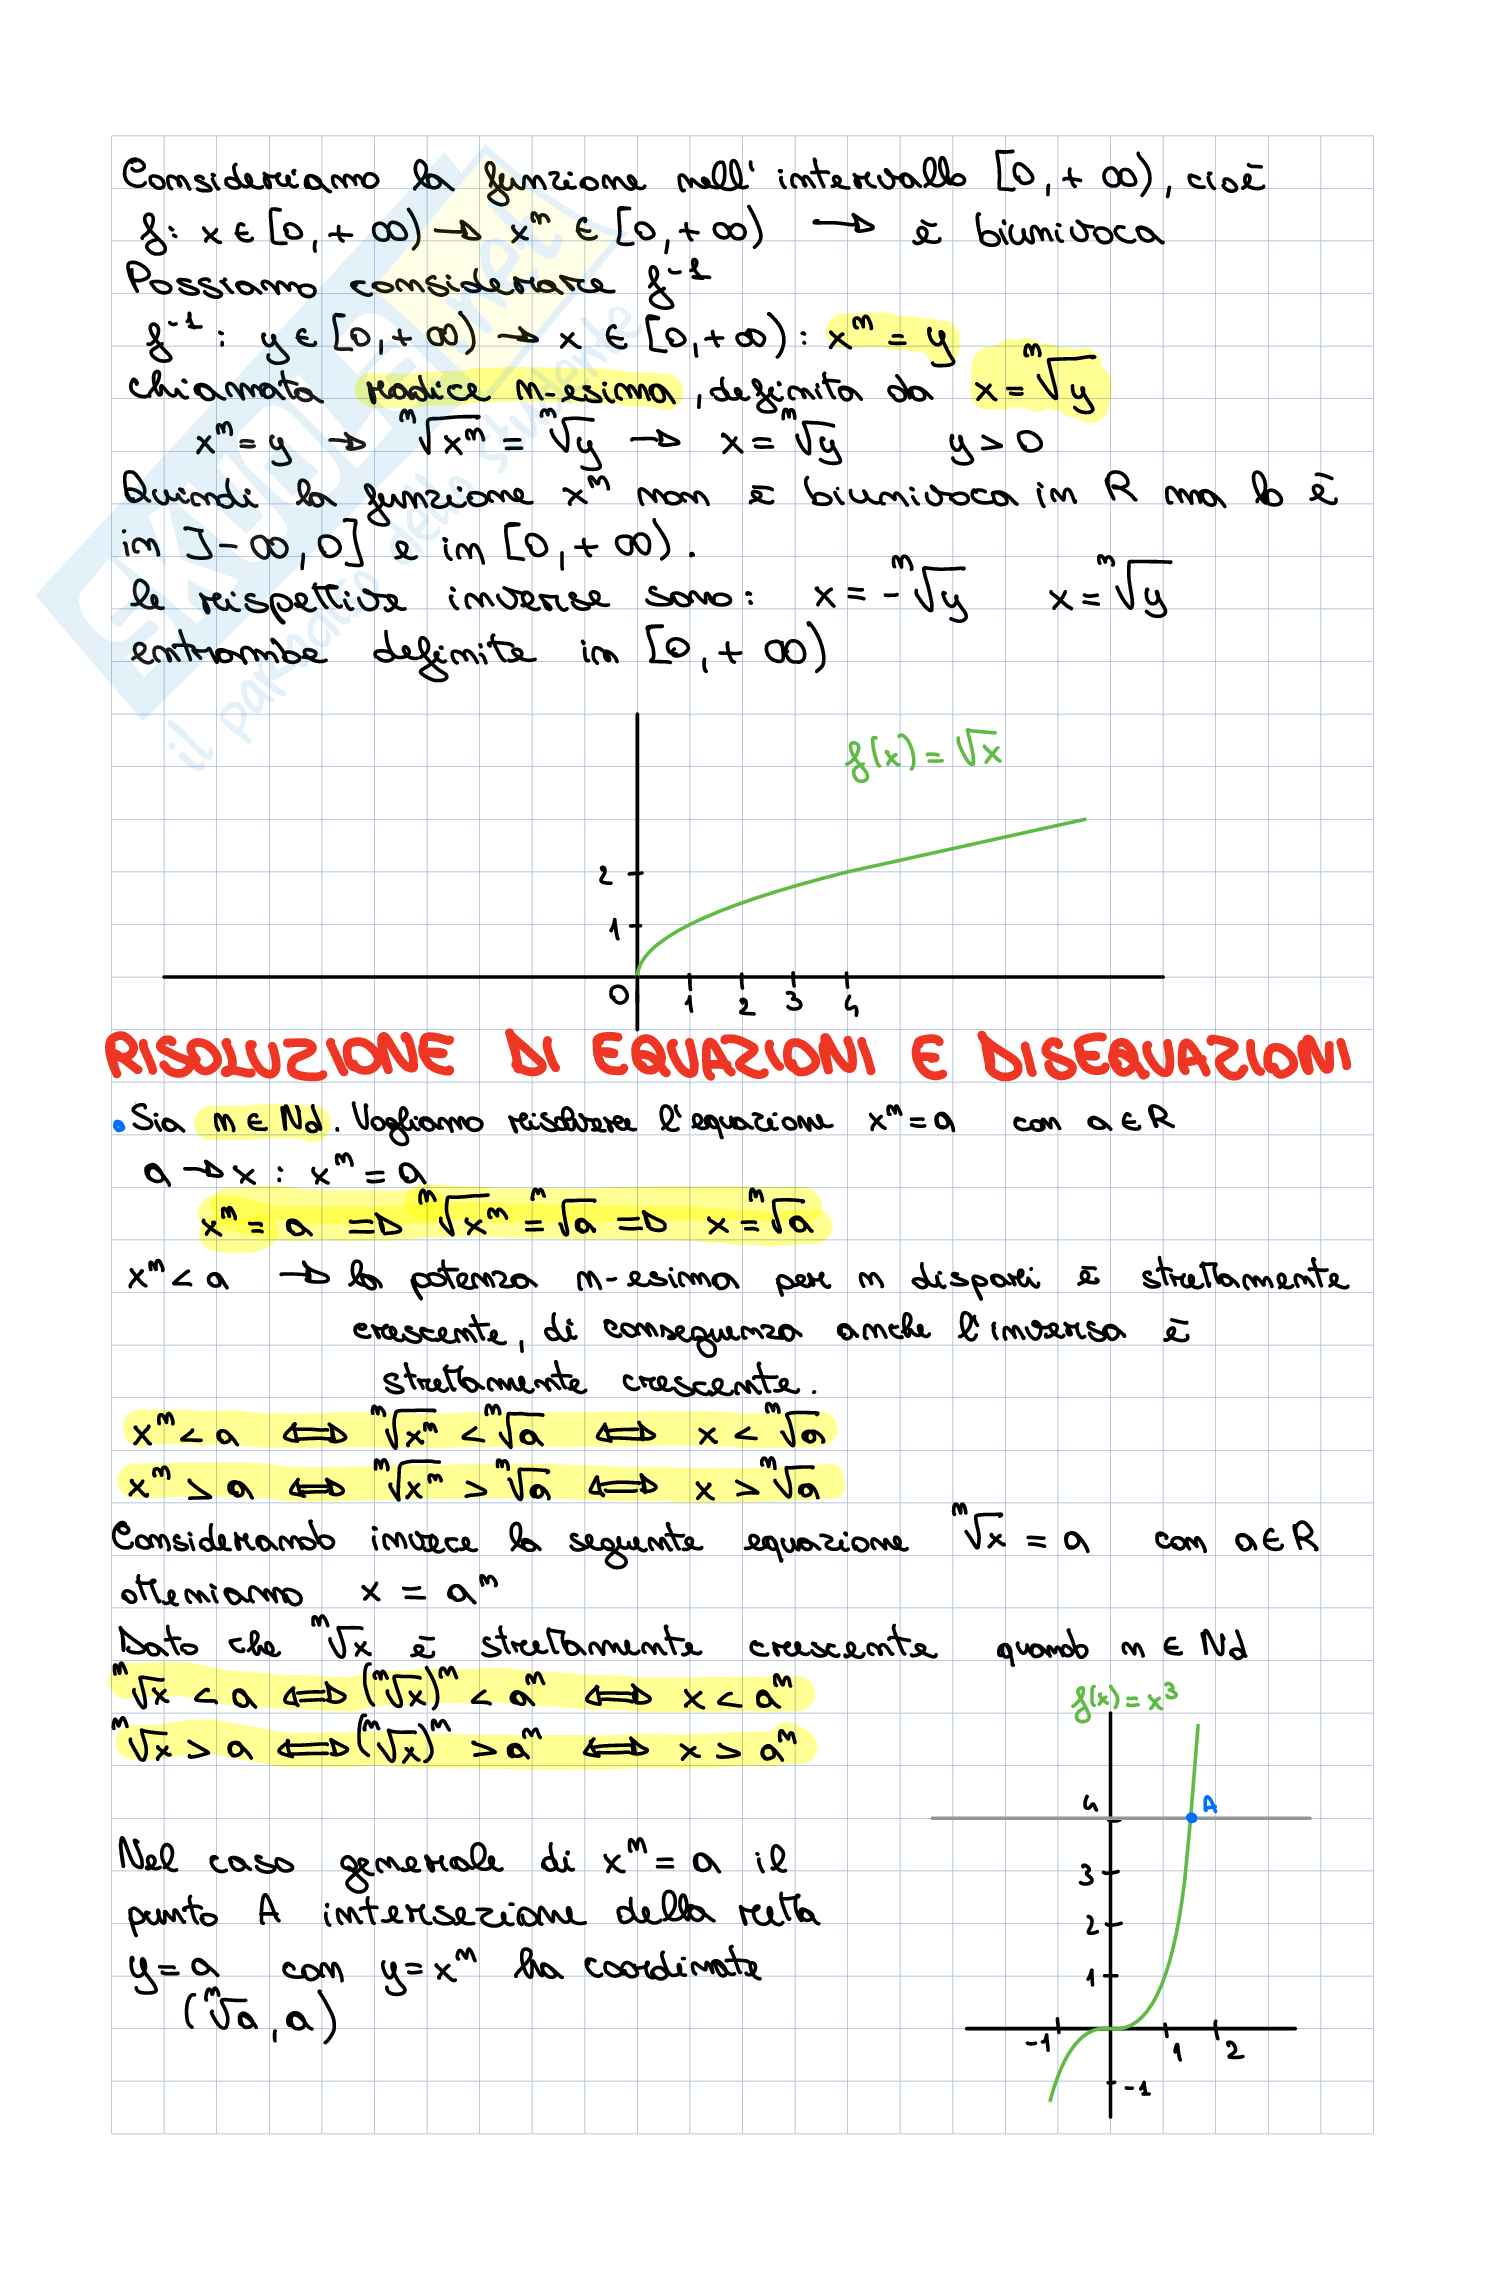 Consideriamo la funzione nell' intervallo [0,+∞), cioè
f: x ∈ [0,+∞) → xⁿ ∈ [0,+∞) → è biunivoca
Possiamo considerare f⁻¹
f⁻¹: y ∈ [0,+∞) → x ∈ [0,+∞) : xⁿ = y
chiamata radice n-esima, definita da x = ⁿ√y
xⁿ = y → ⁿ√xⁿ = ⁿ√y → x = ⁿ√y y > 0
Quindi la funzione xⁿ non è biunivoca in R ma lo è
in ]-∞,0] e in [0,+∞).
le rispettive inverse sono: x = -ⁿ√y x = ⁿ√y
entrambe definite in [0,+∞)
f(x) = √x
2
1
0 1 2 3 4
RISOLUZIONE DI EQUAZIONI E DISEQUAZIONI
• Sia n ∈ Nd. Vogliamo risolvere l'equazione xⁿ = a con a ∈ R
a → x : xⁿ = a
xⁿ = a ⇒ ⁿ√xⁿ = ⁿ√a ⇒ x = ⁿ√a
xⁿ < a → la potenza n-esima per n dispari è strettamente
crescente, di conseguenza anche l'inversa è
strettamente crescente.
xⁿ < a ⇔ ⁿ√xⁿ < ⁿ√a ⇔ x < ⁿ√a
xⁿ > a ⇔ ⁿ√xⁿ > ⁿ√a ⇔ x > ⁿ√a
Considerando invece la seguente equazione ⁿ√x = a con a ∈ R
otteniamo x = aⁿ
Dato che ⁿ√x è strettamente crescente quando n ∈ Nd
ⁿ√x < a ⇔ (ⁿ√x)ⁿ < aⁿ ⇔ x < aⁿ
ⁿ√x > a ⇔ (ⁿ√x)ⁿ > aⁿ ⇔ x > aⁿ
f(x) = x³
4 A
3
2
1
-1 1 2
-1
Nel caso generale di xⁿ = a il
punto A intersezione della retta
y = a con y = xⁿ ha coordinate
(ⁿ√a, a)
SKUOLA.net
il paradiso dello studente